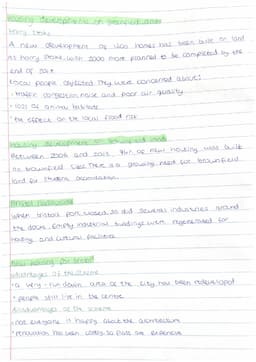 Housing developments on greenfield land
Harry Stoke
A new development of 1200 homes has been built on land
at Harry Stoke, with 2000 more planned to be completed by the
end of 2017.
Local people objected. They were concerned about:
• traffic congestion, noise and poor air quality
• loss of animal habitats
• the effect on the local flood risk
Housing development on brownfield land
Between 2006 and 2013, 94% of new housing was built
on brownfield sites. There is a growing need for brownfield
land for student accommodation.
Bristol Harbourside
When Bristol port closed, so did several industries around
the docks. Empty industrial buildings were regenerated for
housing and cultural facilities.
New housing for Bristol
advantages of the scheme
• a very run-down area of the city has been redeveloped
• people still live in the centre
disadvantages of the scheme
• not everyone is happy about the architecture
• renovation has been costly, so flats are expensive